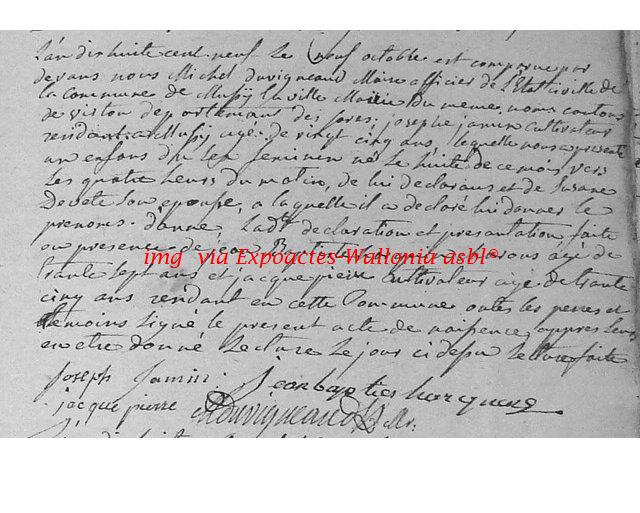 L'an dis huite cent neuf le neuf octobre est comparue par
devans nous Michel Duvigneaud Maire officier de L'Etat civille de
la commune de Mussÿ la ville Mairie du meme nome canton
de virton departemant des fores: josephe jamin Cultivateur
residant a Mussÿ agé de vingt cinq ans, lequelle nous a presenté
un enfans du sex feminen né le huite de ce mois vers
les quatre heurs du matin, de lui declarans et de Susane
son epoupe, a laquelle il a declaré lui donner le
prenoms d'anne, Ladte declaration et presantation faite
en presence de jean Baptiste agé de
trante sept ans et jacque pierre Cultivateur agé de trante
cinq ans residant en cette Commune outes les peres et
temoins signé le present acte de naisence, appres leurs
en etre donné Lecture le jour ci depu lecture faite
img via Expoactes-Wallonia asbl®
Joseph Jamin Jean bapties
jacque pierre MDuvigneaud Mr.